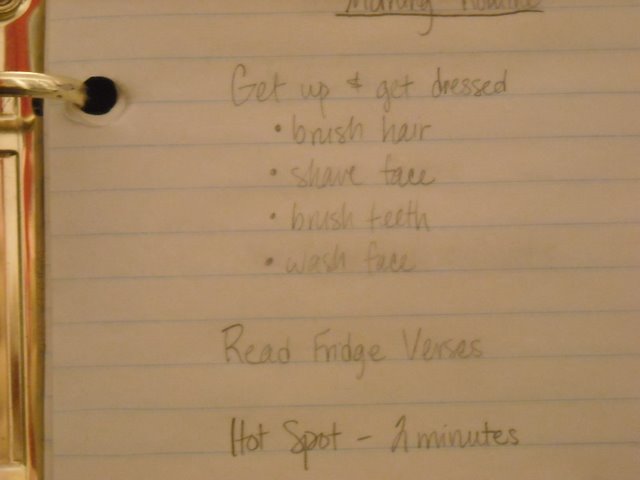 Morning Routine
Get up & get dressed
• brush hair
• shave face
• brush teeth
• wash face
Read Fridge Verses
Hot Spot - 2 minutes